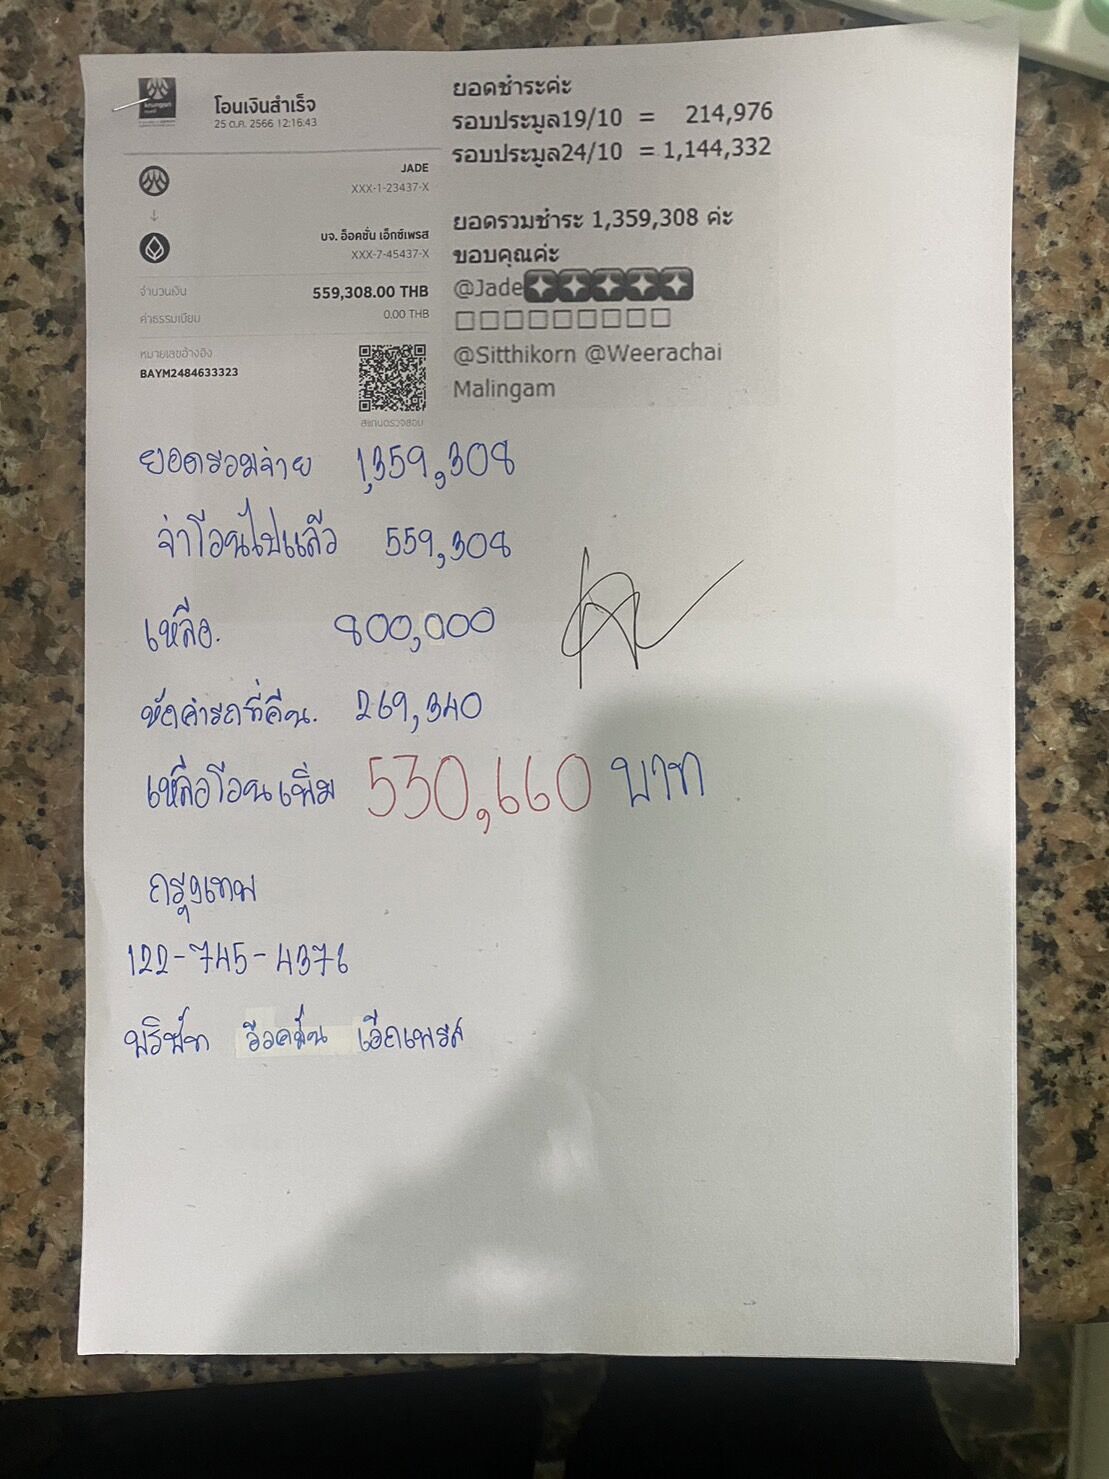 krungthai
โอนเงินสำเร็จ
25 ต.ค. 2566 12:16:43
JADE
XXX-1-23437-X
บจ. อ็อคชั่น เอ็กซ์เพรส
XXX-7-45437-X
จำนวนเงิน 559,308.00 THB
ค่าธรรมเนียม 0.00 THB
หมายเลขอ้างอิง
BAYM2484633323
สแกนตรวจสอบ
ยอดชำระค่ะ
รอบประมูล19/10 = 214,976
รอบประมูล24/10 = 1,144,332
ยอดรวมชำระ 1,359,308 ค่ะ
ขอบคุณค่ะ
@Jade
@Sitthikorn @Weerachai
Malingam
ยอดรวมจ่าย 1,359,308
จ่าโอนไปแล้ว 559,308
เหลือ. 800,000
หักค่ารถที่คืน. 269,340
เหลือโอนเพิ่ม 530,660 บาท
กรุงเทพ
122-745-4376
บริษัท อ๊อคชั่น เอ็กเพรส